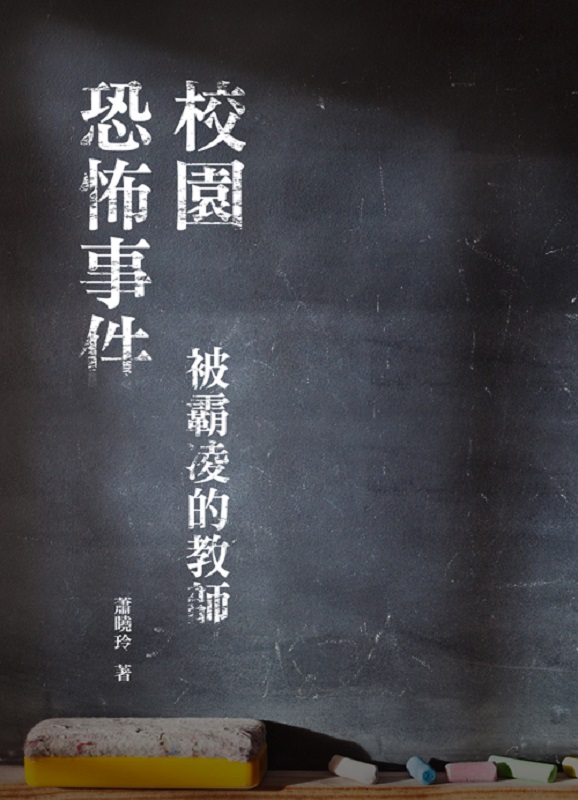 校園
恐怖事件
被霸凌的教師
蕭曉玲 著